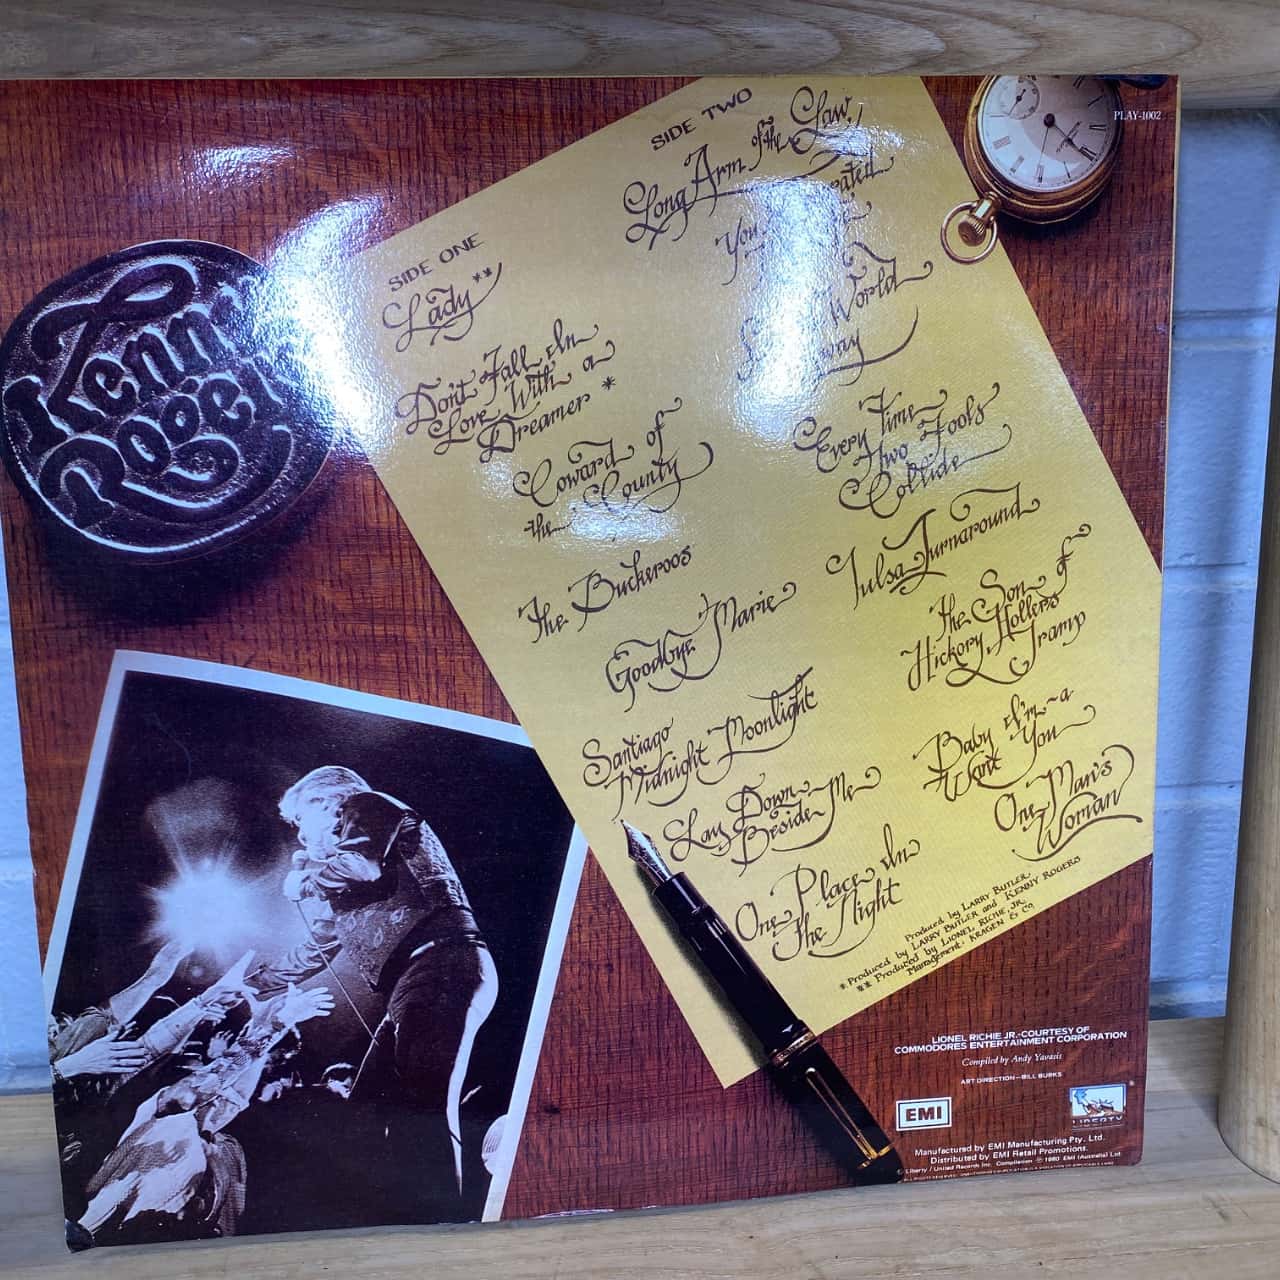 PLAY-1002
Kenny
Rogers
SIDE ONE
Lady **
Don't Fall In
Love With a
Dreamer *
Coward of
the County
The Buckeroos
Goodbye Marie
Santiago
Midnight Moonlight
Lay Down
Beside Me
One Place In
The Night
SIDE TWO
Long Arm of the Law
You
World
Every Time
Two Fools
Collide
Tulsa Turnaround
The Son of
Hickory Hollers
Tramp
Baby I'm-a
Want You
One Man's
Woman
Produced by LARRY BUTLER.
* Produced by LARRY BUTLER and KENNY ROGERS
** Produced by LIONEL RICHIE, JR.
Management: KRAGEN & Co.
LIONEL RICHIE JR.-COURTESY OF
COMMODORES ENTERTAINMENT CORPORATION
Compiled by Andy Yavasis
ART DIRECTION—BILL BURKS
EMI
LIBERTY
Manufactured by EMI Manufacturing Pty. Ltd.
Distributed by EMI Retail Promotions.
Liberty / United Records Inc. Compilation ℗ 1980 EMI (Australia) Ltd